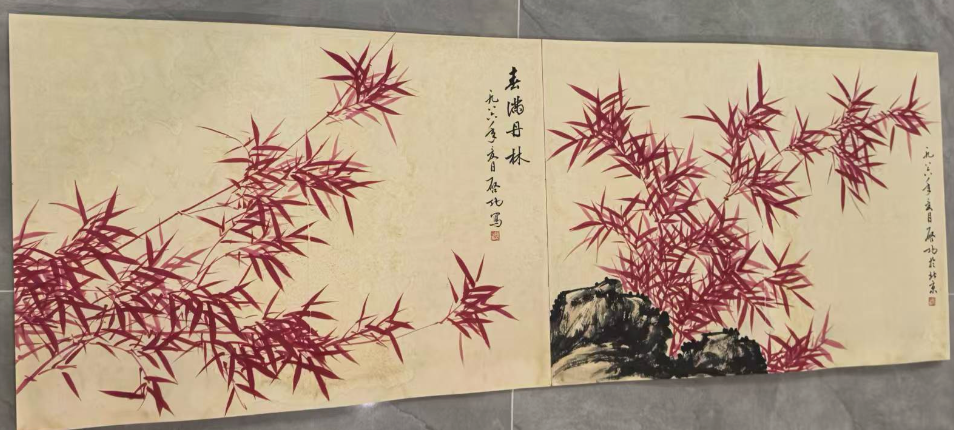 春满丹林
一九八六年夏日启功写
一九八六年夏日启功於北京